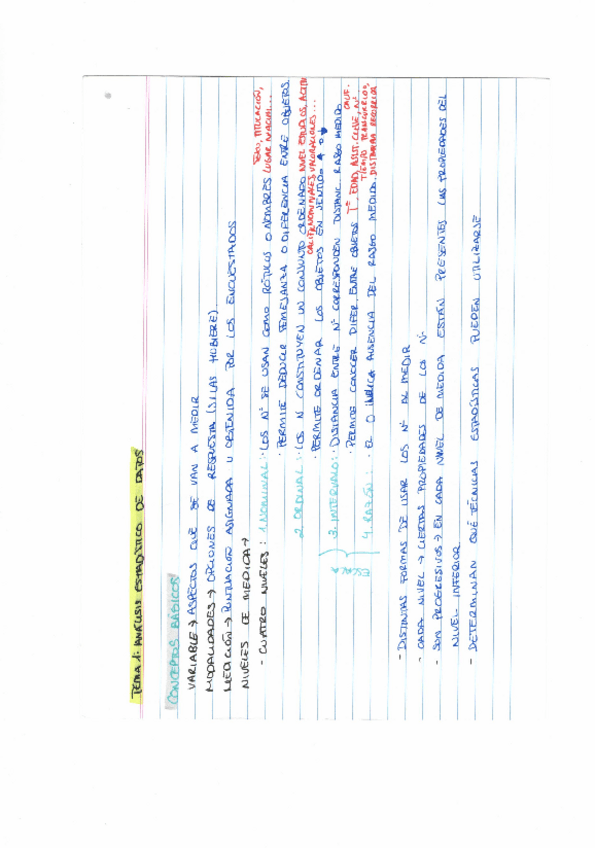 TEMA 1: ANÁLISIS ESTADÍSTICO DE DATOS
CONCEPTOS BÁSICOS
VARIABLE → ASPECTOS QUE SE VAN A MEDIR
MODALIDADES → OPCIONES DE RESPUESTA (SI LAS HUBIERE).
MEDICIÓN → PUNTUACIÓN ASIGNADA U OBTENIDA POR LOS ENCUESTADOS
NIVELES DE MEDIDA →
- CUATRO NIVELES: 1. NOMINAL: · LOS Nº SE USAN COMO RÓTULOS O NOMBRES SEXO, TITULACIÓN, LUGAR NACIM...
· PERMITE DEDUCIR SEMEJANZA O DIFERENCIA ENTRE OBJETOS.
2. ORDINAL: · LOS N CONSTITUYEN UN CONJUNTO ORDENADO NIVEL ESTUDIOS,
VALORACIONES...
· PERMITE ORDENAR LOS OBJETOS EN SENTIDO
ESCALA 3. INTERVALO: · DISTANCIA ENTRE Nº CORRESPONDEN DISTANC. RASGO MEDIDO
· PERMITE CONOCER DIFER. ENTRE OBJETOS Tª, EDAD, ASIST. CLASE, Nº
4. RAZÓN: · EL O INDICA AUSENCIA DEL RASGO MEDIDO. TIEMPO DISTANCIA RECORRIDA
- DISTINTAS FORMAS DE USAR LOS Nº AL MEDIR
- CADA NIVEL → CIERTAS PROPIEDADES DE LOS Nº
- SON PROGRESIVOS → EN CADA NIVEL DE MEDIDA ESTÁN PRESENTES LAS PROPIEDADES DEL
NIVEL INFERIOR
- DETERMINAN QUÉ TÉCNICAS ESTADÍSTICAS PUEDEN UTILIZARSE